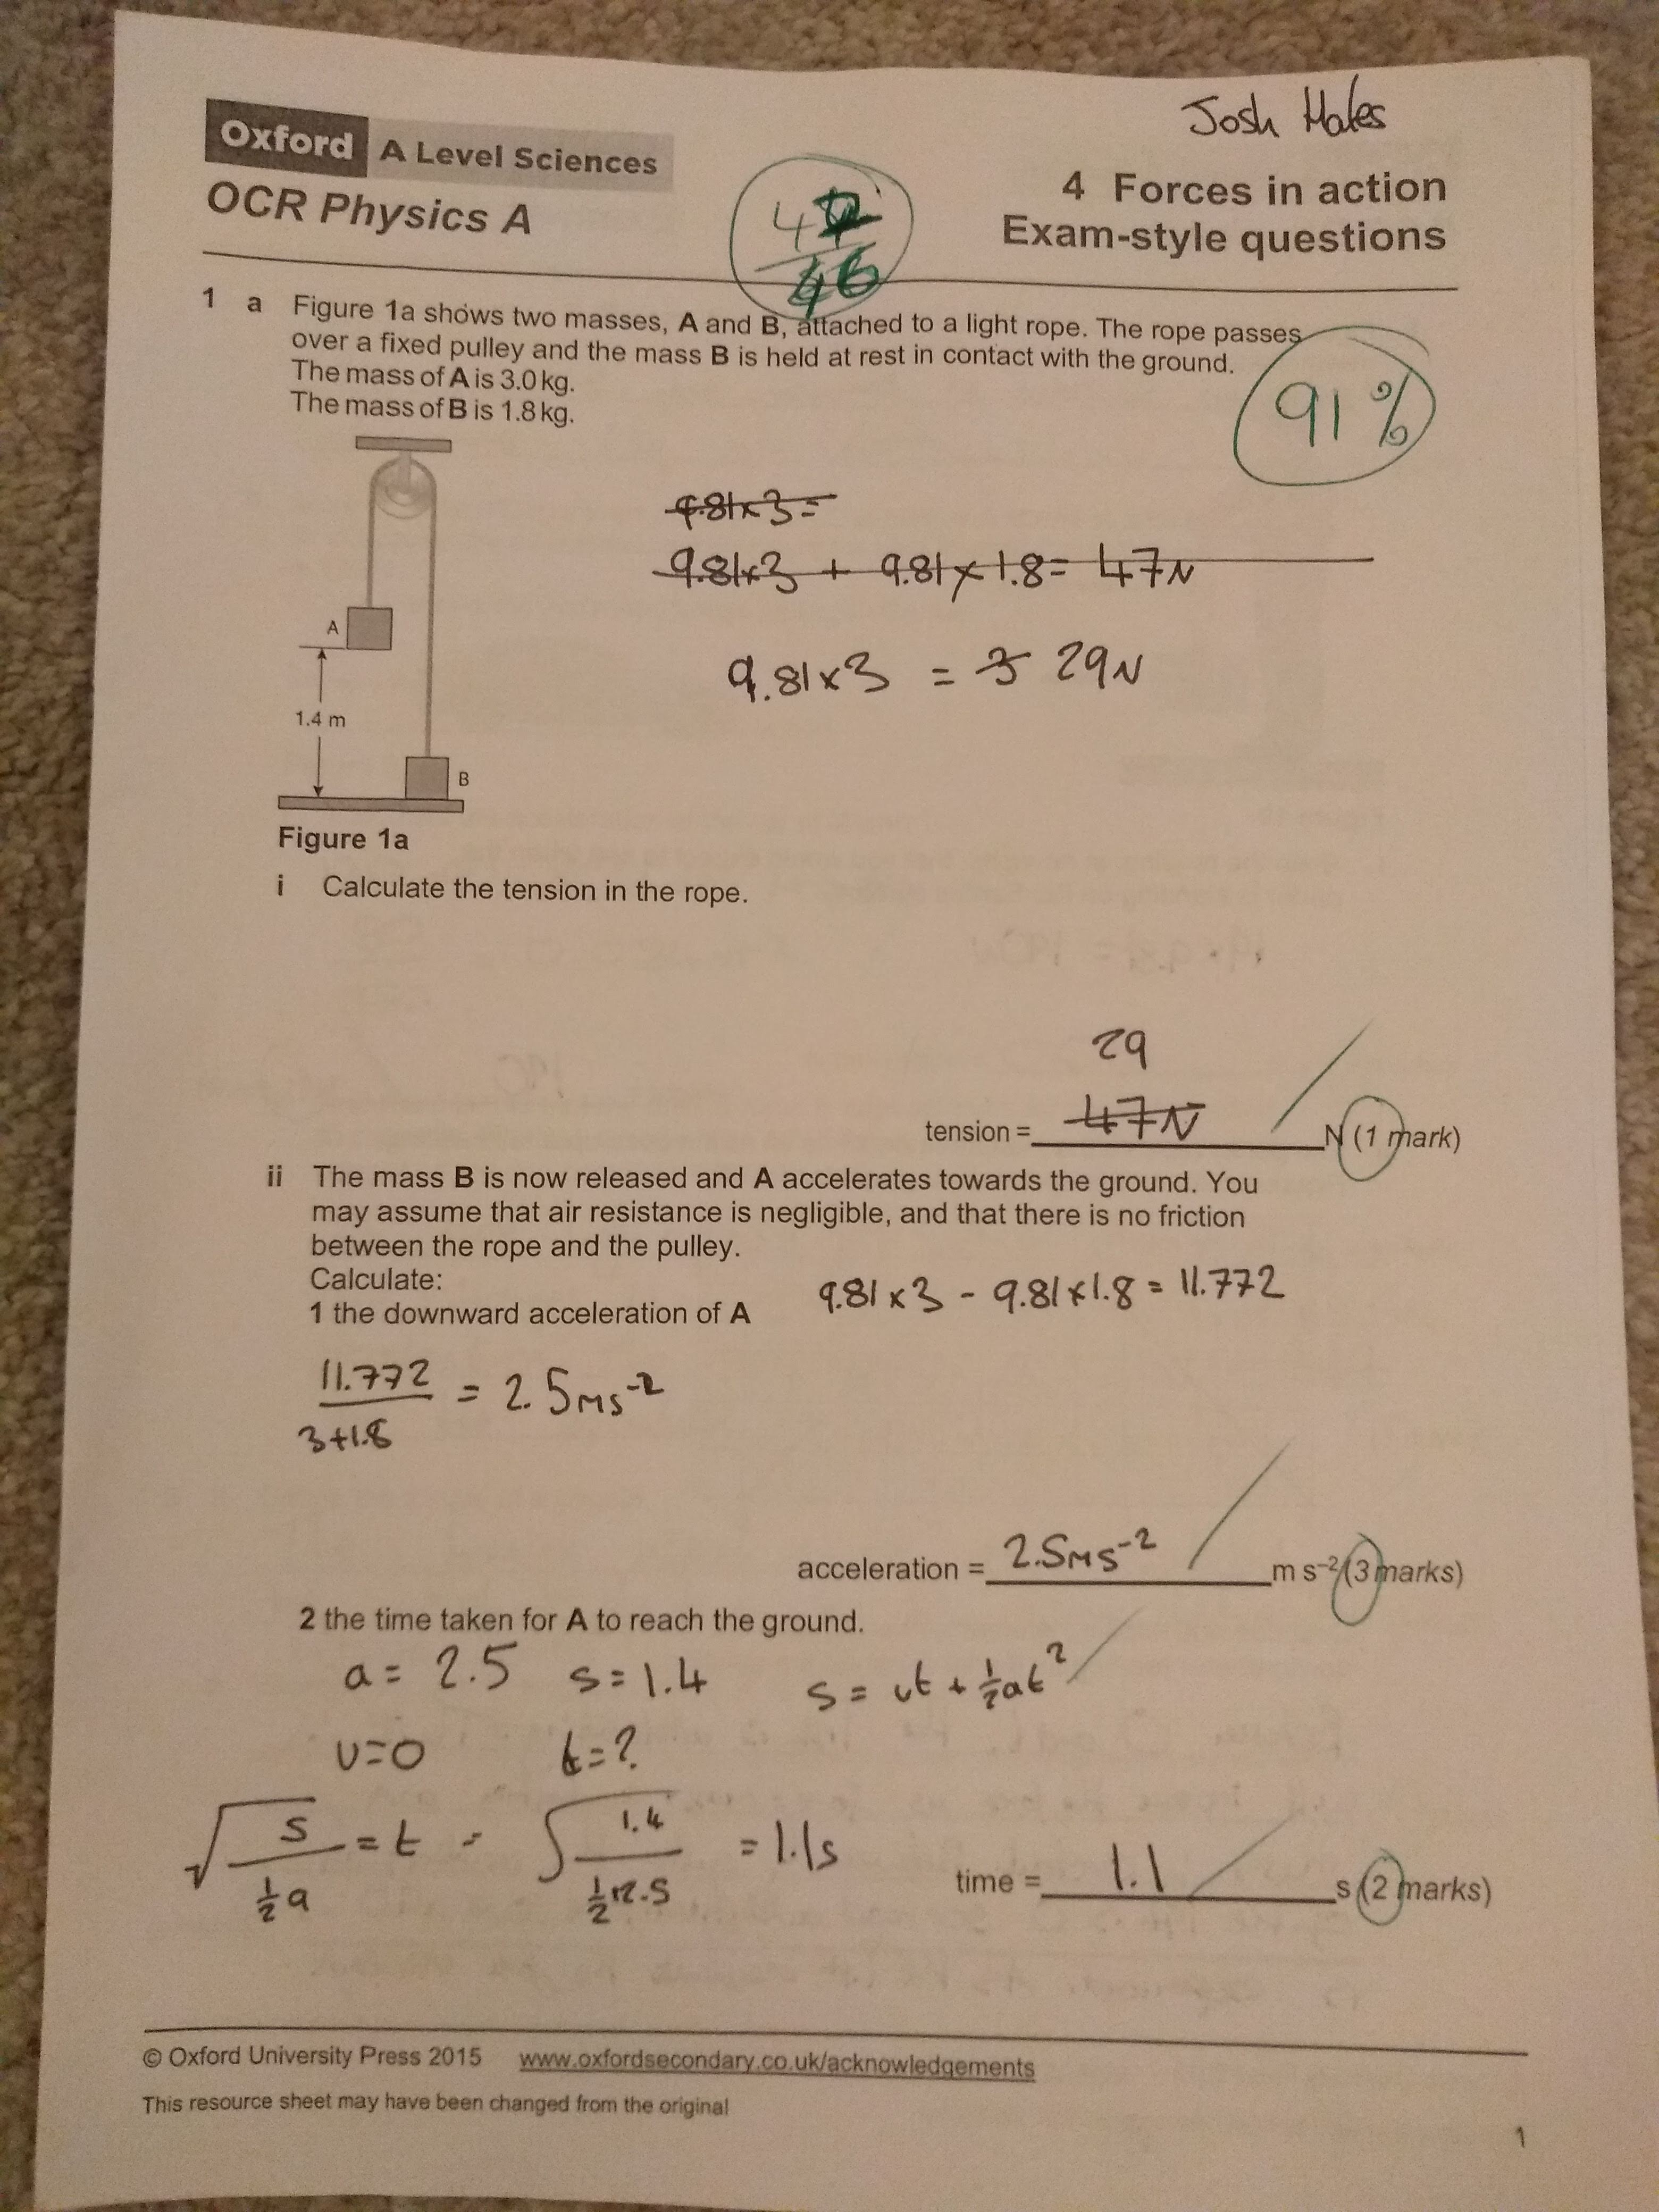 Josh Hales
Oxford A Level Sciences
OCR Physics A
4 Forces in action
Exam-style questions
42
46
91%
1 a Figure 1a shows two masses, A and B, attached to a light rope. The rope passes
over a fixed pulley and the mass B is held at rest in contact with the ground.
The mass of A is 3.0 kg.
The mass of B is 1.8 kg.
9.81×3=
9.81×3 + 9.81×1.8 = 47N
9.81×3 = 3 29N
A
1.4 m
B
Figure 1a
i Calculate the tension in the rope.
29
tension = 47N N (1 mark)
ii The mass B is now released and A accelerates towards the ground. You
may assume that air resistance is negligible, and that there is no friction
between the rope and the pulley.
Calculate:
1 the downward acceleration of A
9.81×3 - 9.81×1.8 = 11.772
11.772
3+1.8
= 2.5ms⁻²
acceleration = 2.5ms⁻² m s⁻² (3 marks)
2 the time taken for A to reach the ground.
a = 2.5 s = 1.4 s = ut + ½at²
u=0 t=?
√(s / ½a) = t = √(1.4 / ½×2.5) = 1.1s
time = 1.1 s (2 marks)
© Oxford University Press 2015 www.oxfordsecondary.co.uk/acknowledgements
This resource sheet may have been changed from the original
1